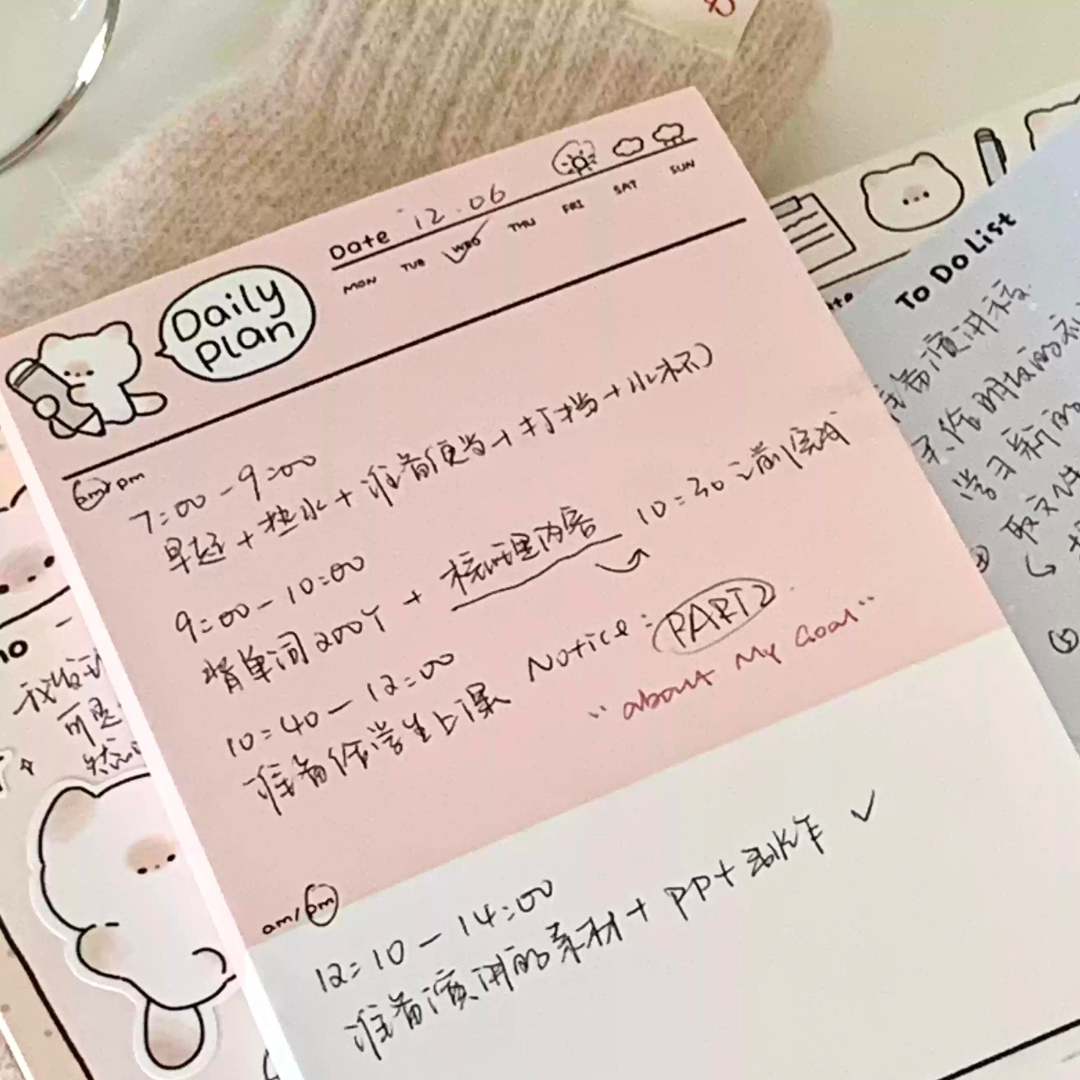 Date 12.06
MON TUE WED THU FRI SAT SUN
Daily
Plan
am/pm
7:00-9:00
早起+热水+准备便当+打挡+小杯)
9:00-10:00
背单词200个+梳理内容 10:30之前完成
10:40-12:00
准备给学生上课 Notice: PART2
"about My Goal"
am/pm
12:10-14:00
准备演讲的素材+PPT制作
To Do List
准备演讲稿
学习新的
取文件